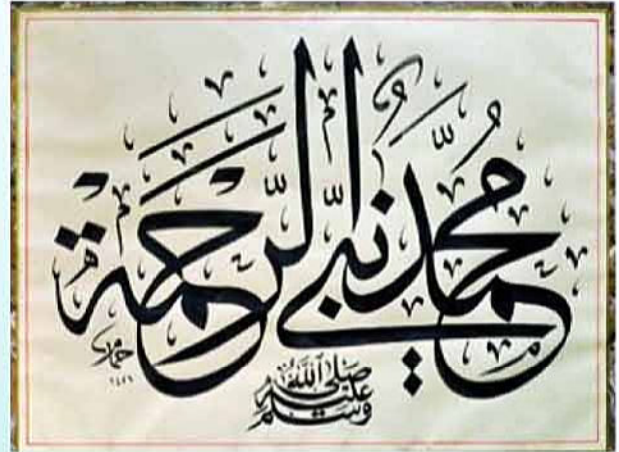 محمد نبي الرحمة
صلى الله عليه وسلم